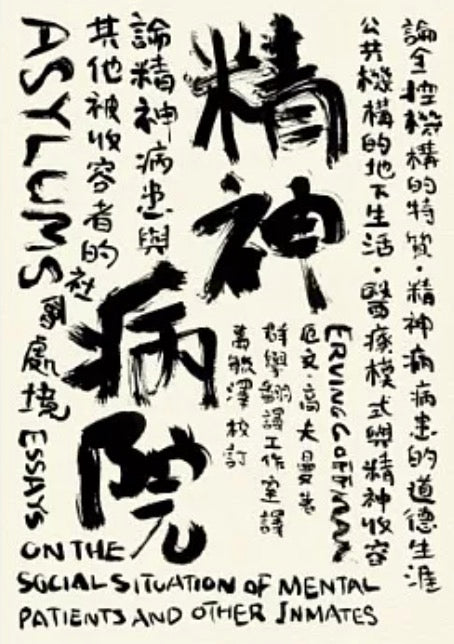 論全控機構的特質・精神病病患的道德生涯
公共機構的地下生活・醫療模式與精神收容
精神
病院
ERVING GOFFMAN
厄文・高夫曼 著
群學翻譯工作室 譯
萬毓澤 校訂
論精神病患與
其他被收容者的社會處境
ASYLUMS
ESSAYS
ON THE
SOCIAL SITUATION OF MENTAL
PATIENTS AND OTHER INMATES